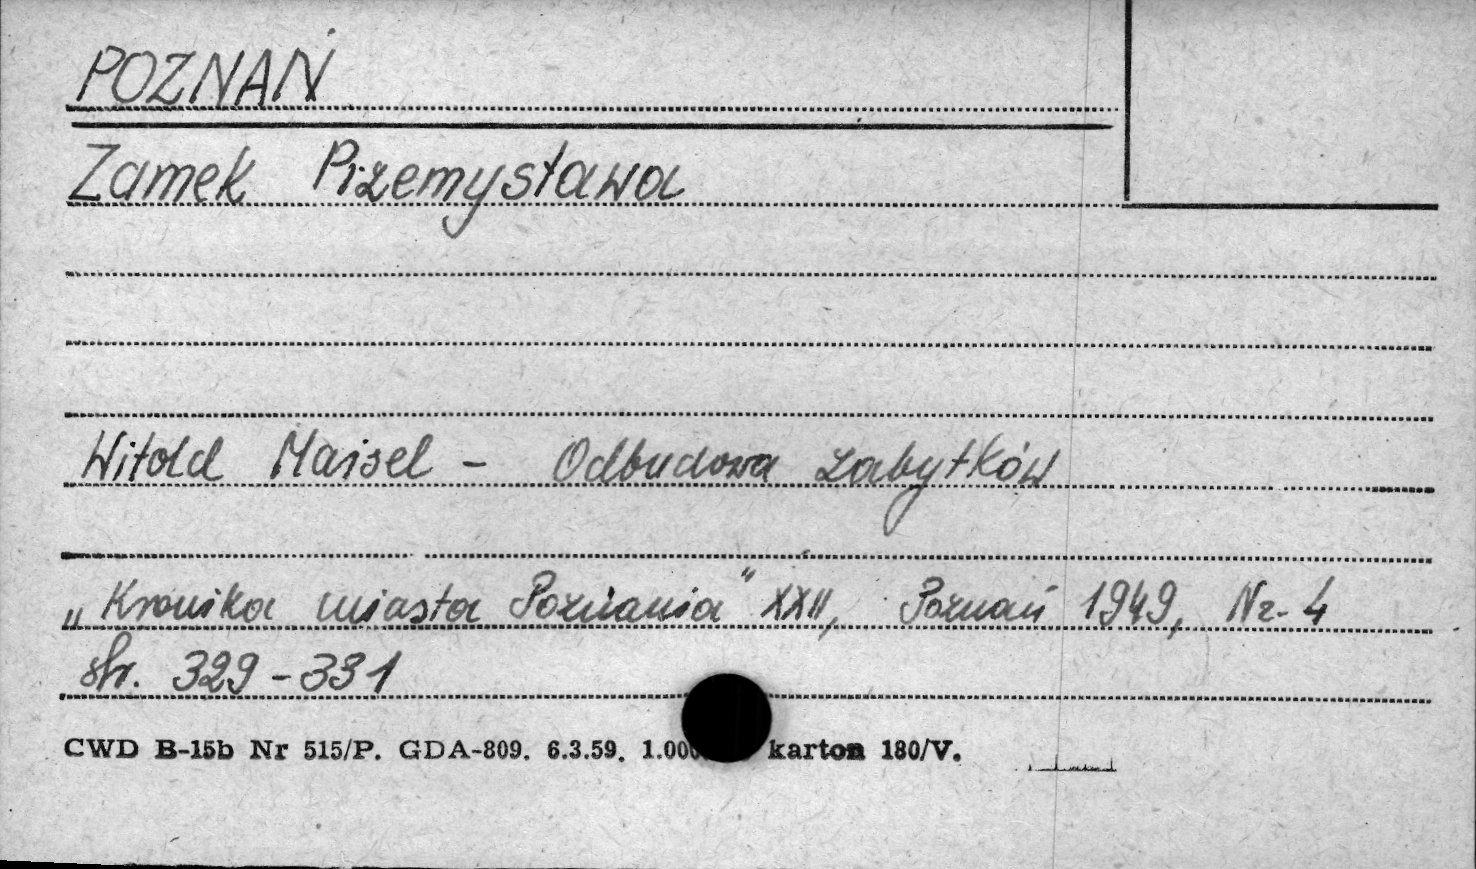 POZNAŃ
Zamek Przemysława
Witold Maisel - Odbudowa zabytków
„Kronika miasta Poznania" XXII, Poznań 1949, Nr. 4
str. 329-331
CWD B-15b Nr 515/P. GDA-809. 6.3.59. karton 180/V.